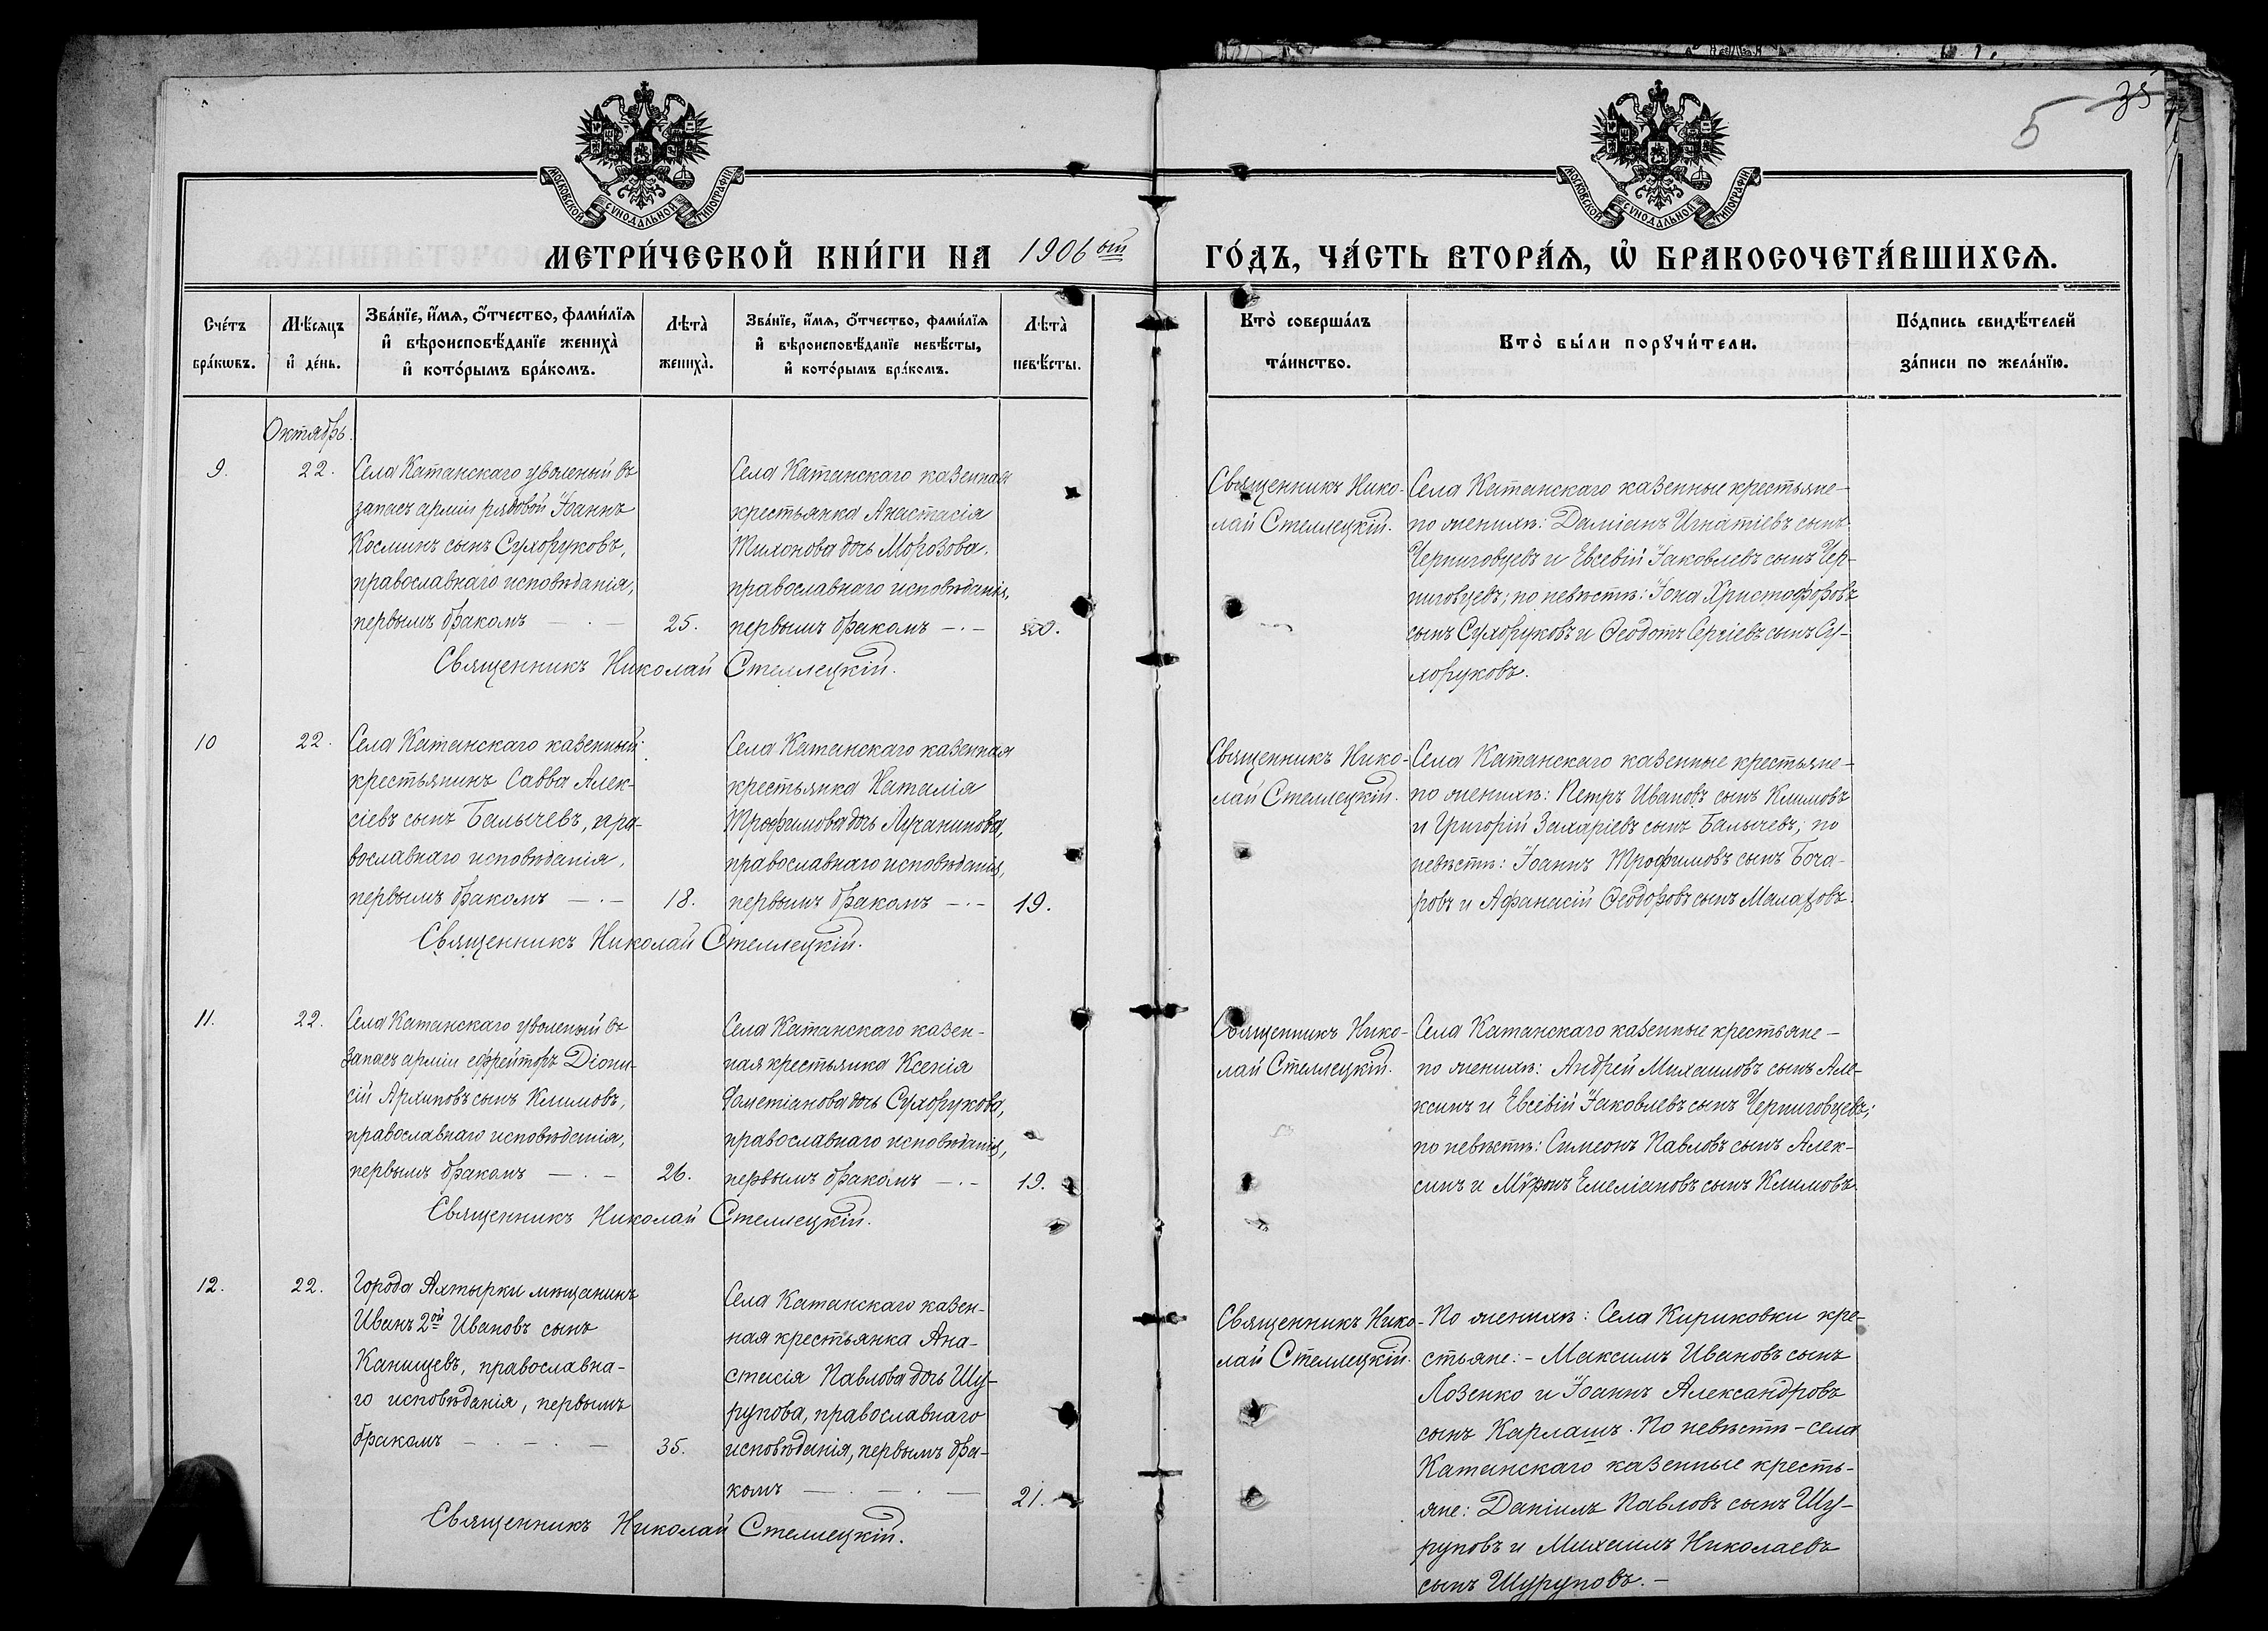 5 35
МОСКОВСКОЙ СѴНОДАЛЬНОЙ ТИПОГРАФІИ
МОСКОВСКОЙ СѴНОДАЛЬНОЙ ТИПОГРАФІИ
МЕТРИ́ЧЕСКОЙ КНИ́ГИ НА 1906ой ГО́ДЪ, ЧА́СТЬ ВТОРА́Ѧ, Ѡ҆ БРАКОСОЧЕТА́ВШИХСѦ.
Сче́тъ
бра́кѡвъ.
Мѣ́сяцъ
и҆ де́нь.
Зва́нїе, и҆́мя, о҆́тчество, фами́лїя
и҆ вѣроисповѣ́данїе жениха̀
и҆ кото́рымъ бра́комъ.
Лѣта̀
жениха̀.
Зва́нїе, и҆́мя, о҆́тчество, фами́лїя
и҆ вѣроисповѣ́данїе невѣ́сты,
и҆ кото́рымъ бра́комъ.
Лѣта̀
невѣ́сты.
Кто̀ соверша́лъ
та́инство.
Кто̀ бы́ли порꙋчи́тели.
По́дпись свидѣ́телей
за́писи по жела́нїю.
Октябрь.
9.
22.
Села Катанскаго уволеный въ
запасъ арміи рядовой Іоаннъ
Косминъ сынъ Сухоруковъ,
православнаго исповѣданія,
первымъ бракомъ — . —
25.
Села Катанскаго казенная
крестьянка Анастасія
Тихонова дочь Морозова.
православнаго исповѣданія,
первымъ бракомъ — . —
20.
Священникъ Николай Стеллецкій.
Священникъ Нико-
лай Стеллецкій.
Села Катанскаго казенные крестьяне —
по женихѣ: Даміанъ Игнатіевъ сынъ
Черниговцевъ и Евсевій Іаковлевъ сынъ Чер-
ниговцевъ; по невѣстѣ: Іона Христофоровъ
сынъ Сухоруковъ и Ѳеодотъ Сергіевъ сынъ Су-
хоруковъ.
10
22.
Села Катанскаго казенный
крестьянинъ Савва Алек-
сіевъ сынъ Балычевъ, пра-
вославнаго исповѣданія,
первымъ бракомъ — . —
18.
Села Катанскаго казенная
крестьянка Наталія
Трофимова дочь Лучанинова,
православнаго исповѣданія,
первымъ бракомъ — . —
19.
Священникъ Николай Стеллецкій.
Священникъ Нико-
лай Стеллецкій.
Села Катанскаго казенные крестьяне —
по женихѣ: Петръ Ивановъ сынъ Климовъ
и Григорій Захаріевъ сынъ Балычевъ; по
невѣстѣ: Іоаннъ Трофимовъ сынъ Боча-
ровъ и Афанасій Ѳеодоровъ сынъ Малаховъ.
11.
22.
Села Катанскаго уволеный въ
запасъ арміи ефрейторъ Діони-
сій Архиповъ сынъ Климовъ,
православнаго исповѣданія,
первымъ бракомъ — . —
26.
Села Катанскаго казен-
ная крестьянка Ксенія
дочь Сухорукова,
православнаго исповѣданія,
первымъ бракомъ — . —
19.
Священникъ Николай Стеллецкій.
Священникъ Нико-
лай Стеллецкій.
Села Катанскаго казенные крестьяне —
по женихѣ: Андрей Михаиловъ сынъ Але-
ксинъ и Евсевій Іаковлевъ сынъ Черниговцевъ;
по невѣстѣ: Симеонъ Павловъ сынъ Алек-
синъ и Мѵронъ Емеліановъ сынъ Климовъ.
12.
22.
Города Ахтырки мѣщанинъ
Иванъ 2ой Ивановъ сынъ
Канищевъ, православна-
го исповѣданія, первымъ
бракомъ — . — . —
35.
Села Катанскаго казен-
ная крестьянка Ана-
стасія Павлова дочь Шу-
рупова, православнаго
исповѣданія, первымъ бра-
комъ — . — . —
21.
Священникъ Николай Стеллецкій.
Священникъ Нико-
лай Стеллецкій.
По женихѣ: Села Кириковки кре-
стьяне: — Максимъ Ивановъ сынъ
Лозенко и Іоаннъ Александровъ
сынъ Карлашъ. По невѣстѣ — села
Катанскаго казенные кресть-
яне: Даніилъ Павловъ сынъ Шу-
руповъ и Михаилъ Николаевъ
сынъ Шуруповъ. —